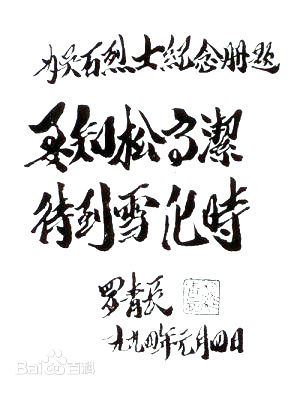 为吴石烈士紀念册题
要知松高潔
待到雪化時
罗青长
一九九四年元月四日
Baidu百科